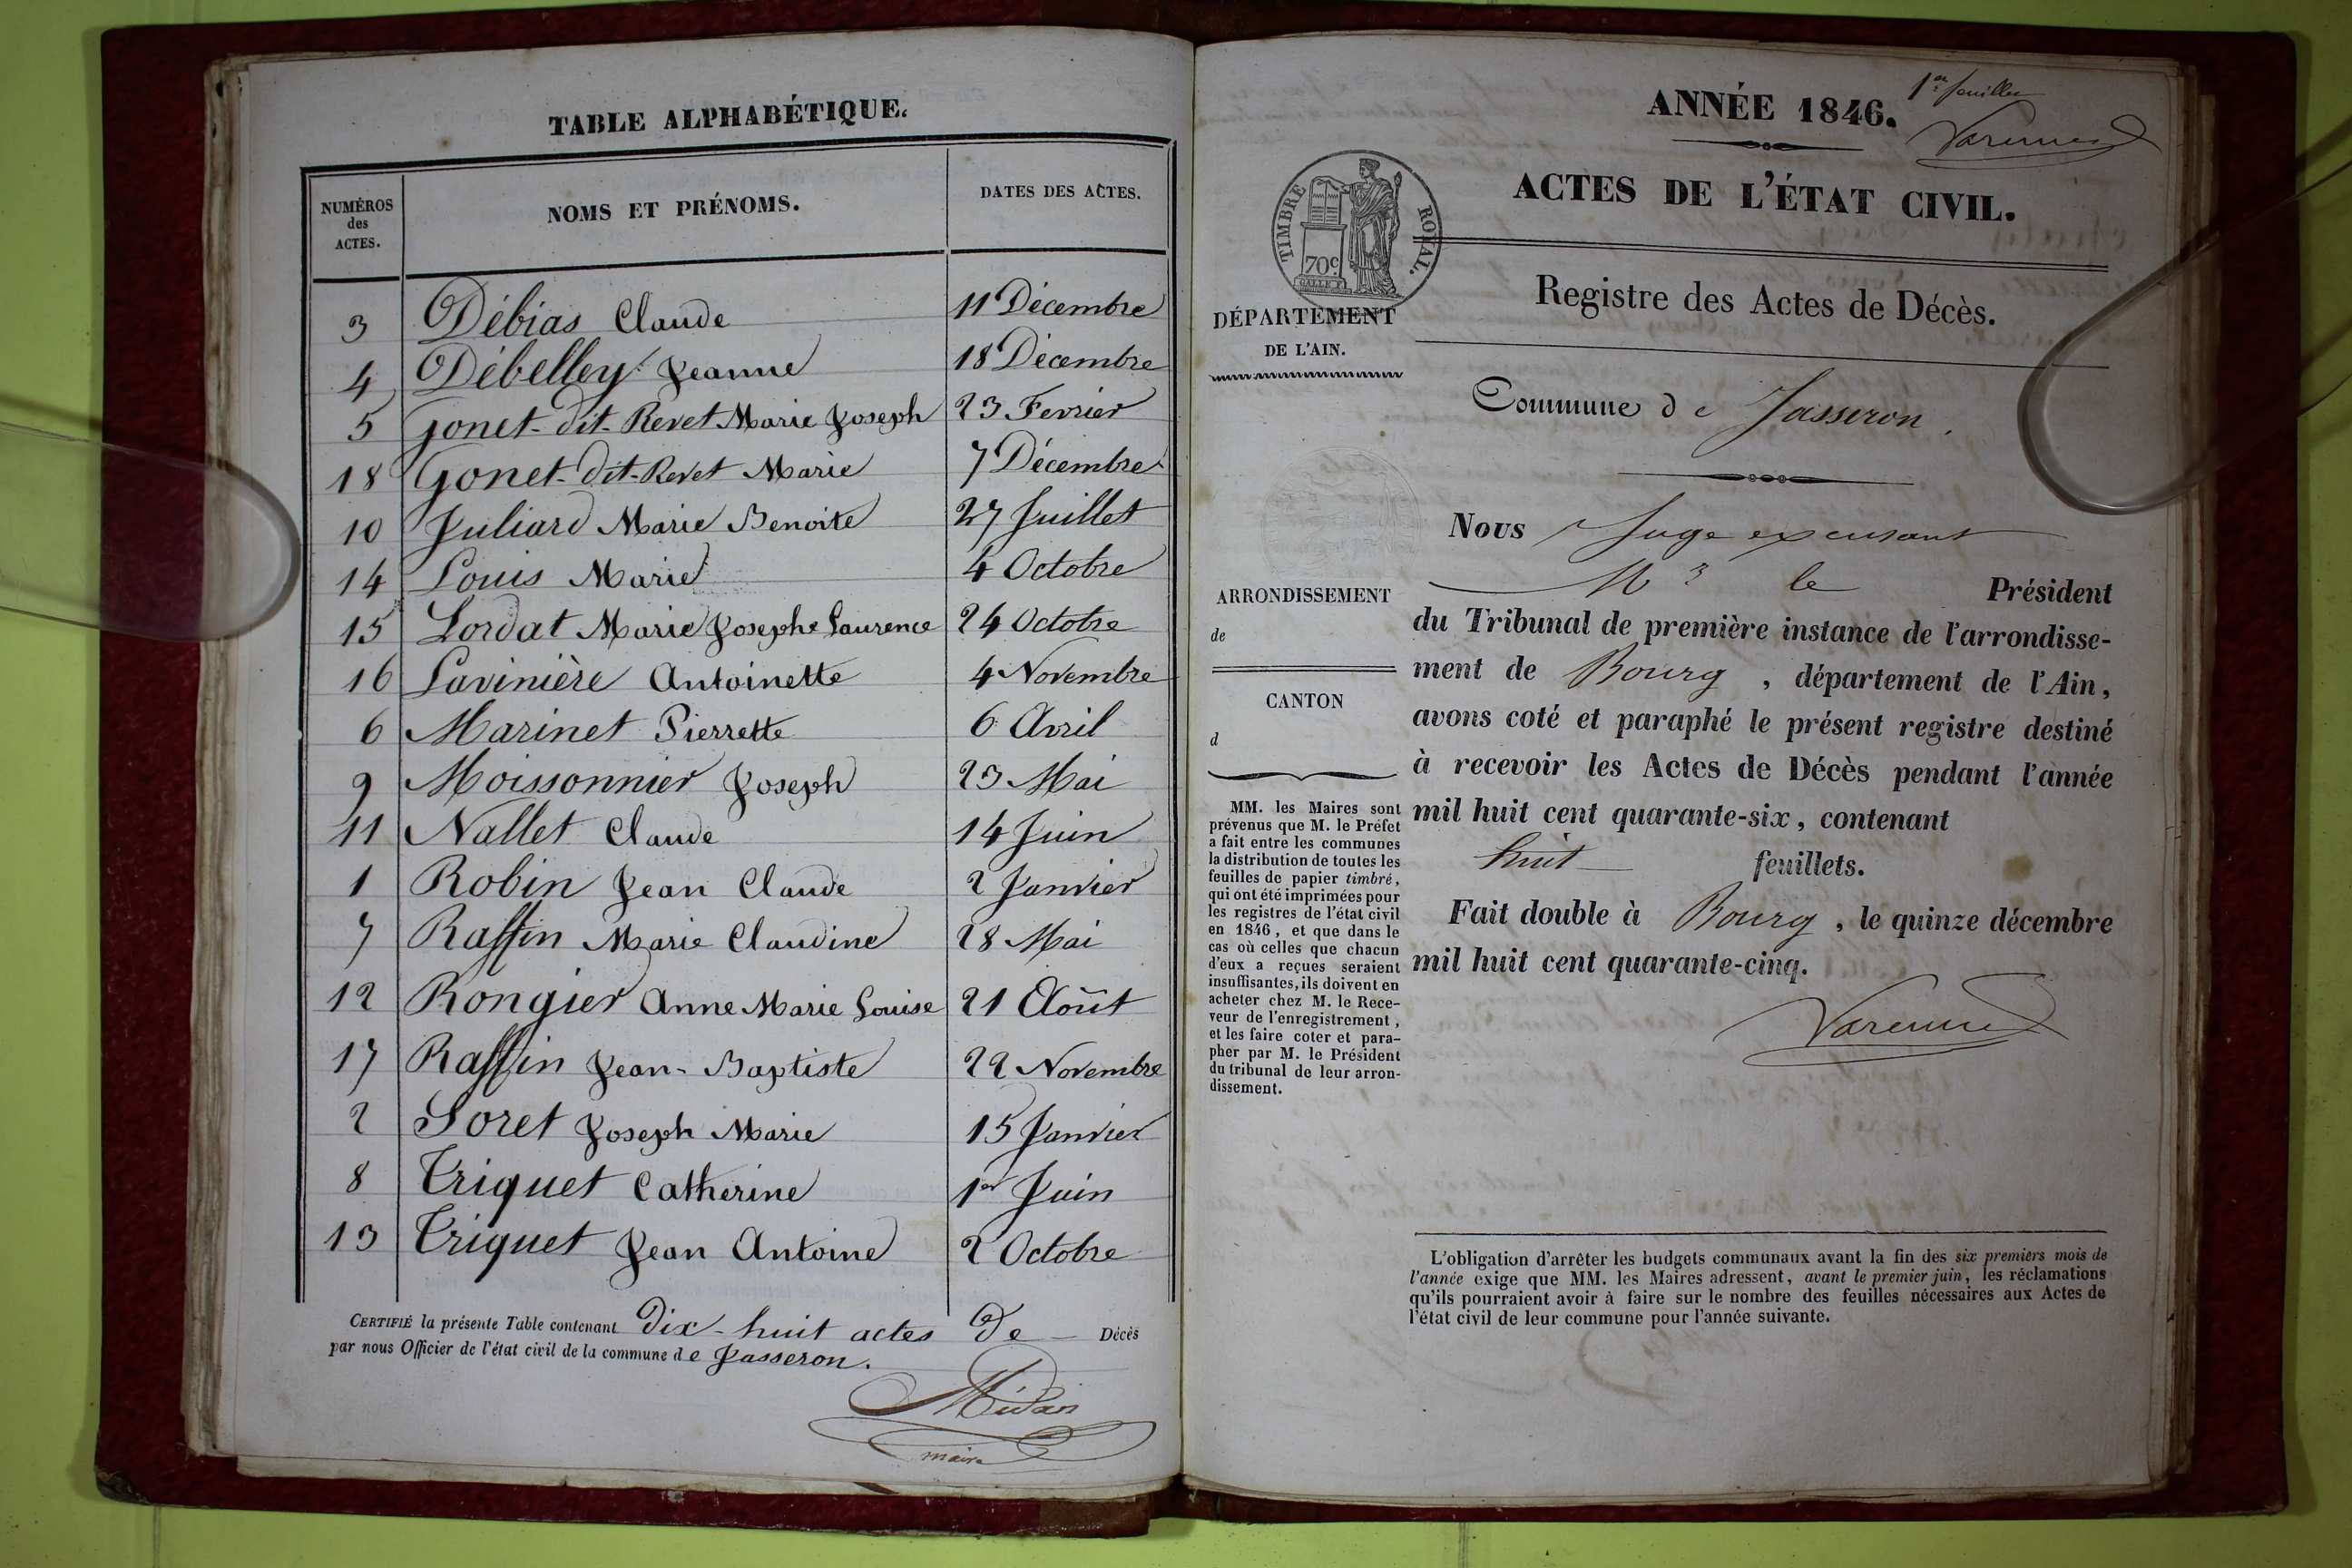 TABLE ALPHABÉTIQUE.
NUMÉROS des ACTES. NOMS ET PRÉNOMS. DATES DES ACTES.
3 Débias Claude 11 Décembre
4 Débelley Jeanne 18 Décembre
5 Gonet-dit-Revet Marie Joseph 23 Fevrier
18 Gonet-dit-Revet Marie 7 Décembre
10 Juliard Marie Benoite 27 Juillet
14 Louis Marie 4 Octobre
15 Lordat Marie Josephe Laurence 24 Octobre
16 Lavinière Antoinette 4 Novembre
6 Marinet Pierrette 6 Avril
9 Moissonnier Joseph 23 Mai
11 Nallet Claude 14 Juin
1 Robin Jean Claude 2 Janvier
7 Raffin Marie Claudine 28 Mai
12 Rongier Anne Marie Louise 21 Août
17 Raffin Jean-Baptiste 22 Novembre
2 Soret Joseph Marie 15 Janvier
8 Triquet Catherine 1er Juin
13 Triquet Jean Antoine 2 Octobre
CERTIFIÉ la présente Table contenant Dix-huit actes De Décès
par nous Officier de l'état civil de la commune de Jasseron.
maire
1er feuillet
ANNÉE 1846.
Varennes
ACTES DE L'ÉTAT CIVIL.
TIMBRE ROYAL.
70c
Registre des Actes de Décès.
DÉPARTEMENT
DE L'AIN.
Commune de Jasseron.
Nous Juge excusant
Mr le Président
du Tribunal de première instance de l'arrondisse-
ment de Bourg, département de l'Ain,
avons coté et paraphé le présent registre destiné
à recevoir les Actes de Décès pendant l'année
mil huit cent quarante-six, contenant
huit feuillets.
Fait double à Bourg, le quinze décembre
mil huit cent quarante-cinq.
Varennes
ARRONDISSEMENT
de
CANTON
d
MM. les Maires sont
prévenus que M. le Préfet
a fait entre les communes
la distribution de toutes les
feuilles de papier timbré,
qui ont été imprimées pour
les registres de l'état civil
en 1846, et que dans le
cas où celles que chacun
d'eux a reçues seraient
insuffisantes, ils doivent en
acheter chez M. le Rece-
veur de l'enregistrement,
et les faire coter et para-
pher par M. le Président
du tribunal de leur arron-
dissement.
L'obligation d'arrêter les budgets communaux avant la fin des six premiers mois de
l'année exige que MM. les Maires adressent, avant le premier juin, les réclamations
qu'ils pourraient avoir à faire sur le nombre des feuilles nécessaires aux Actes de
l'état civil de leur commune pour l'année suivante.